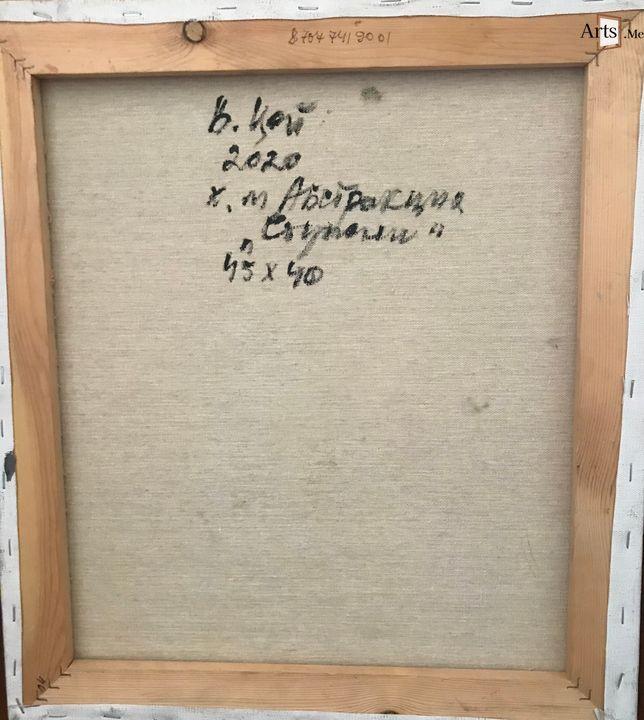 87077419001
Arts.Me
В. Цой
2020
х, м Абстракция
„Ступени"
45 х 40